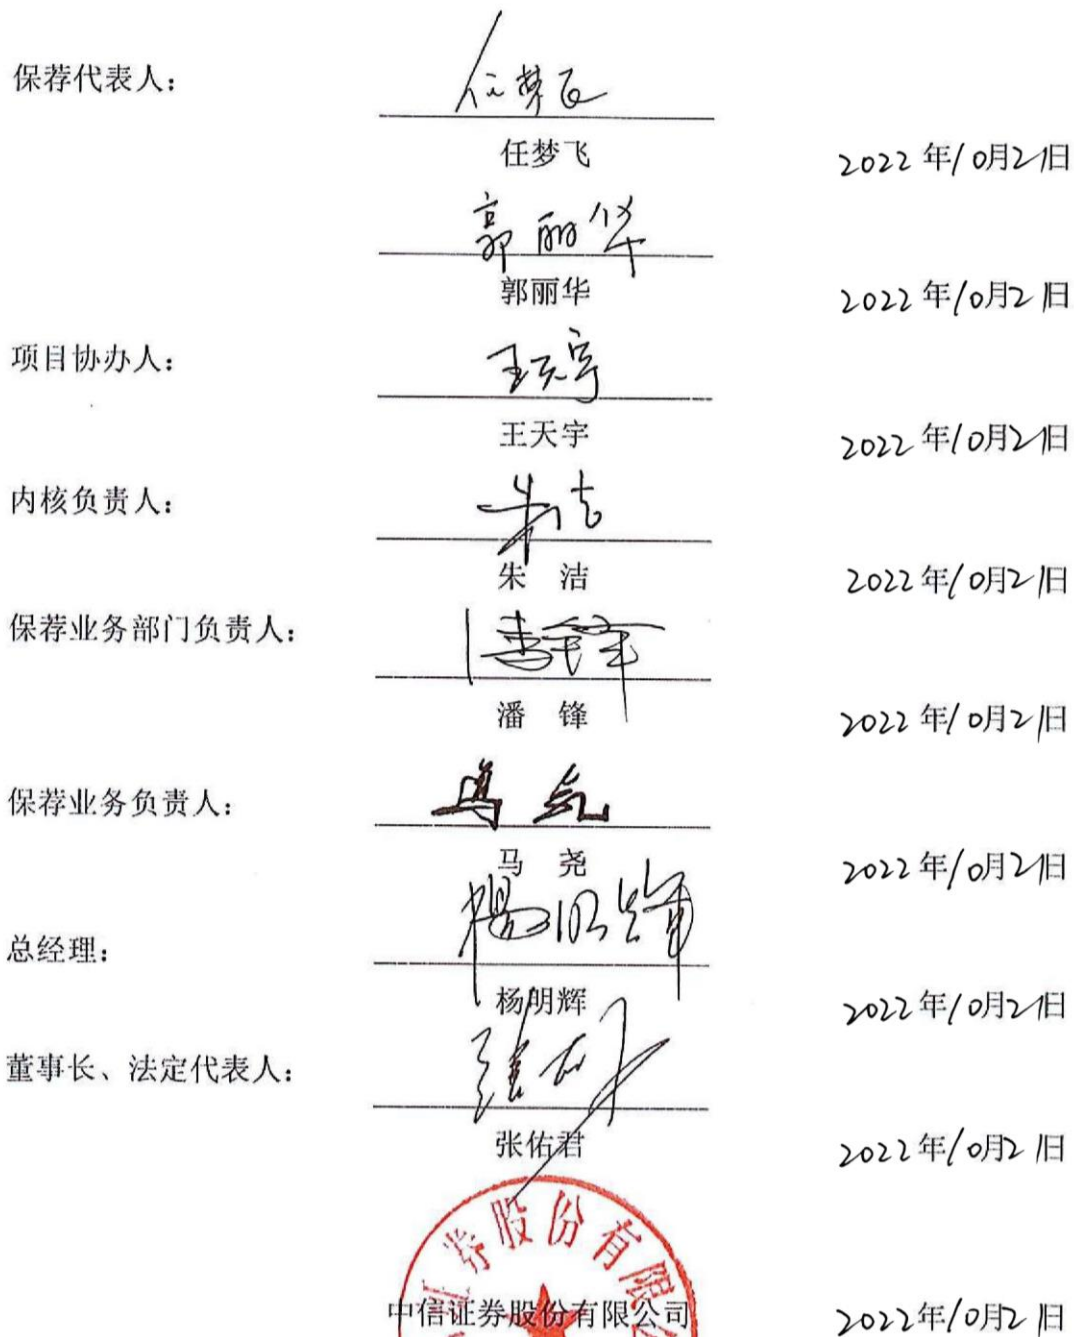 保荐代表人：
任梦飞
任梦飞
2022年10月21日
郭丽华
郭丽华
2022年10月21日
项目协办人：
王天宇
王天宇
2022年10月21日
内核负责人：
朱洁
朱 洁
2022年10月21日
保荐业务部门负责人：
潘锋
潘 锋
2022年10月21日
保荐业务负责人：
马尧
马 尧
2022年10月21日
总经理：
杨明辉
杨明辉
2022年10月21日
董事长、法定代表人：
张佑君
张佑君
2022年10月21日
证券股份有限公
中信证券股份有限公司
2022年10月21日